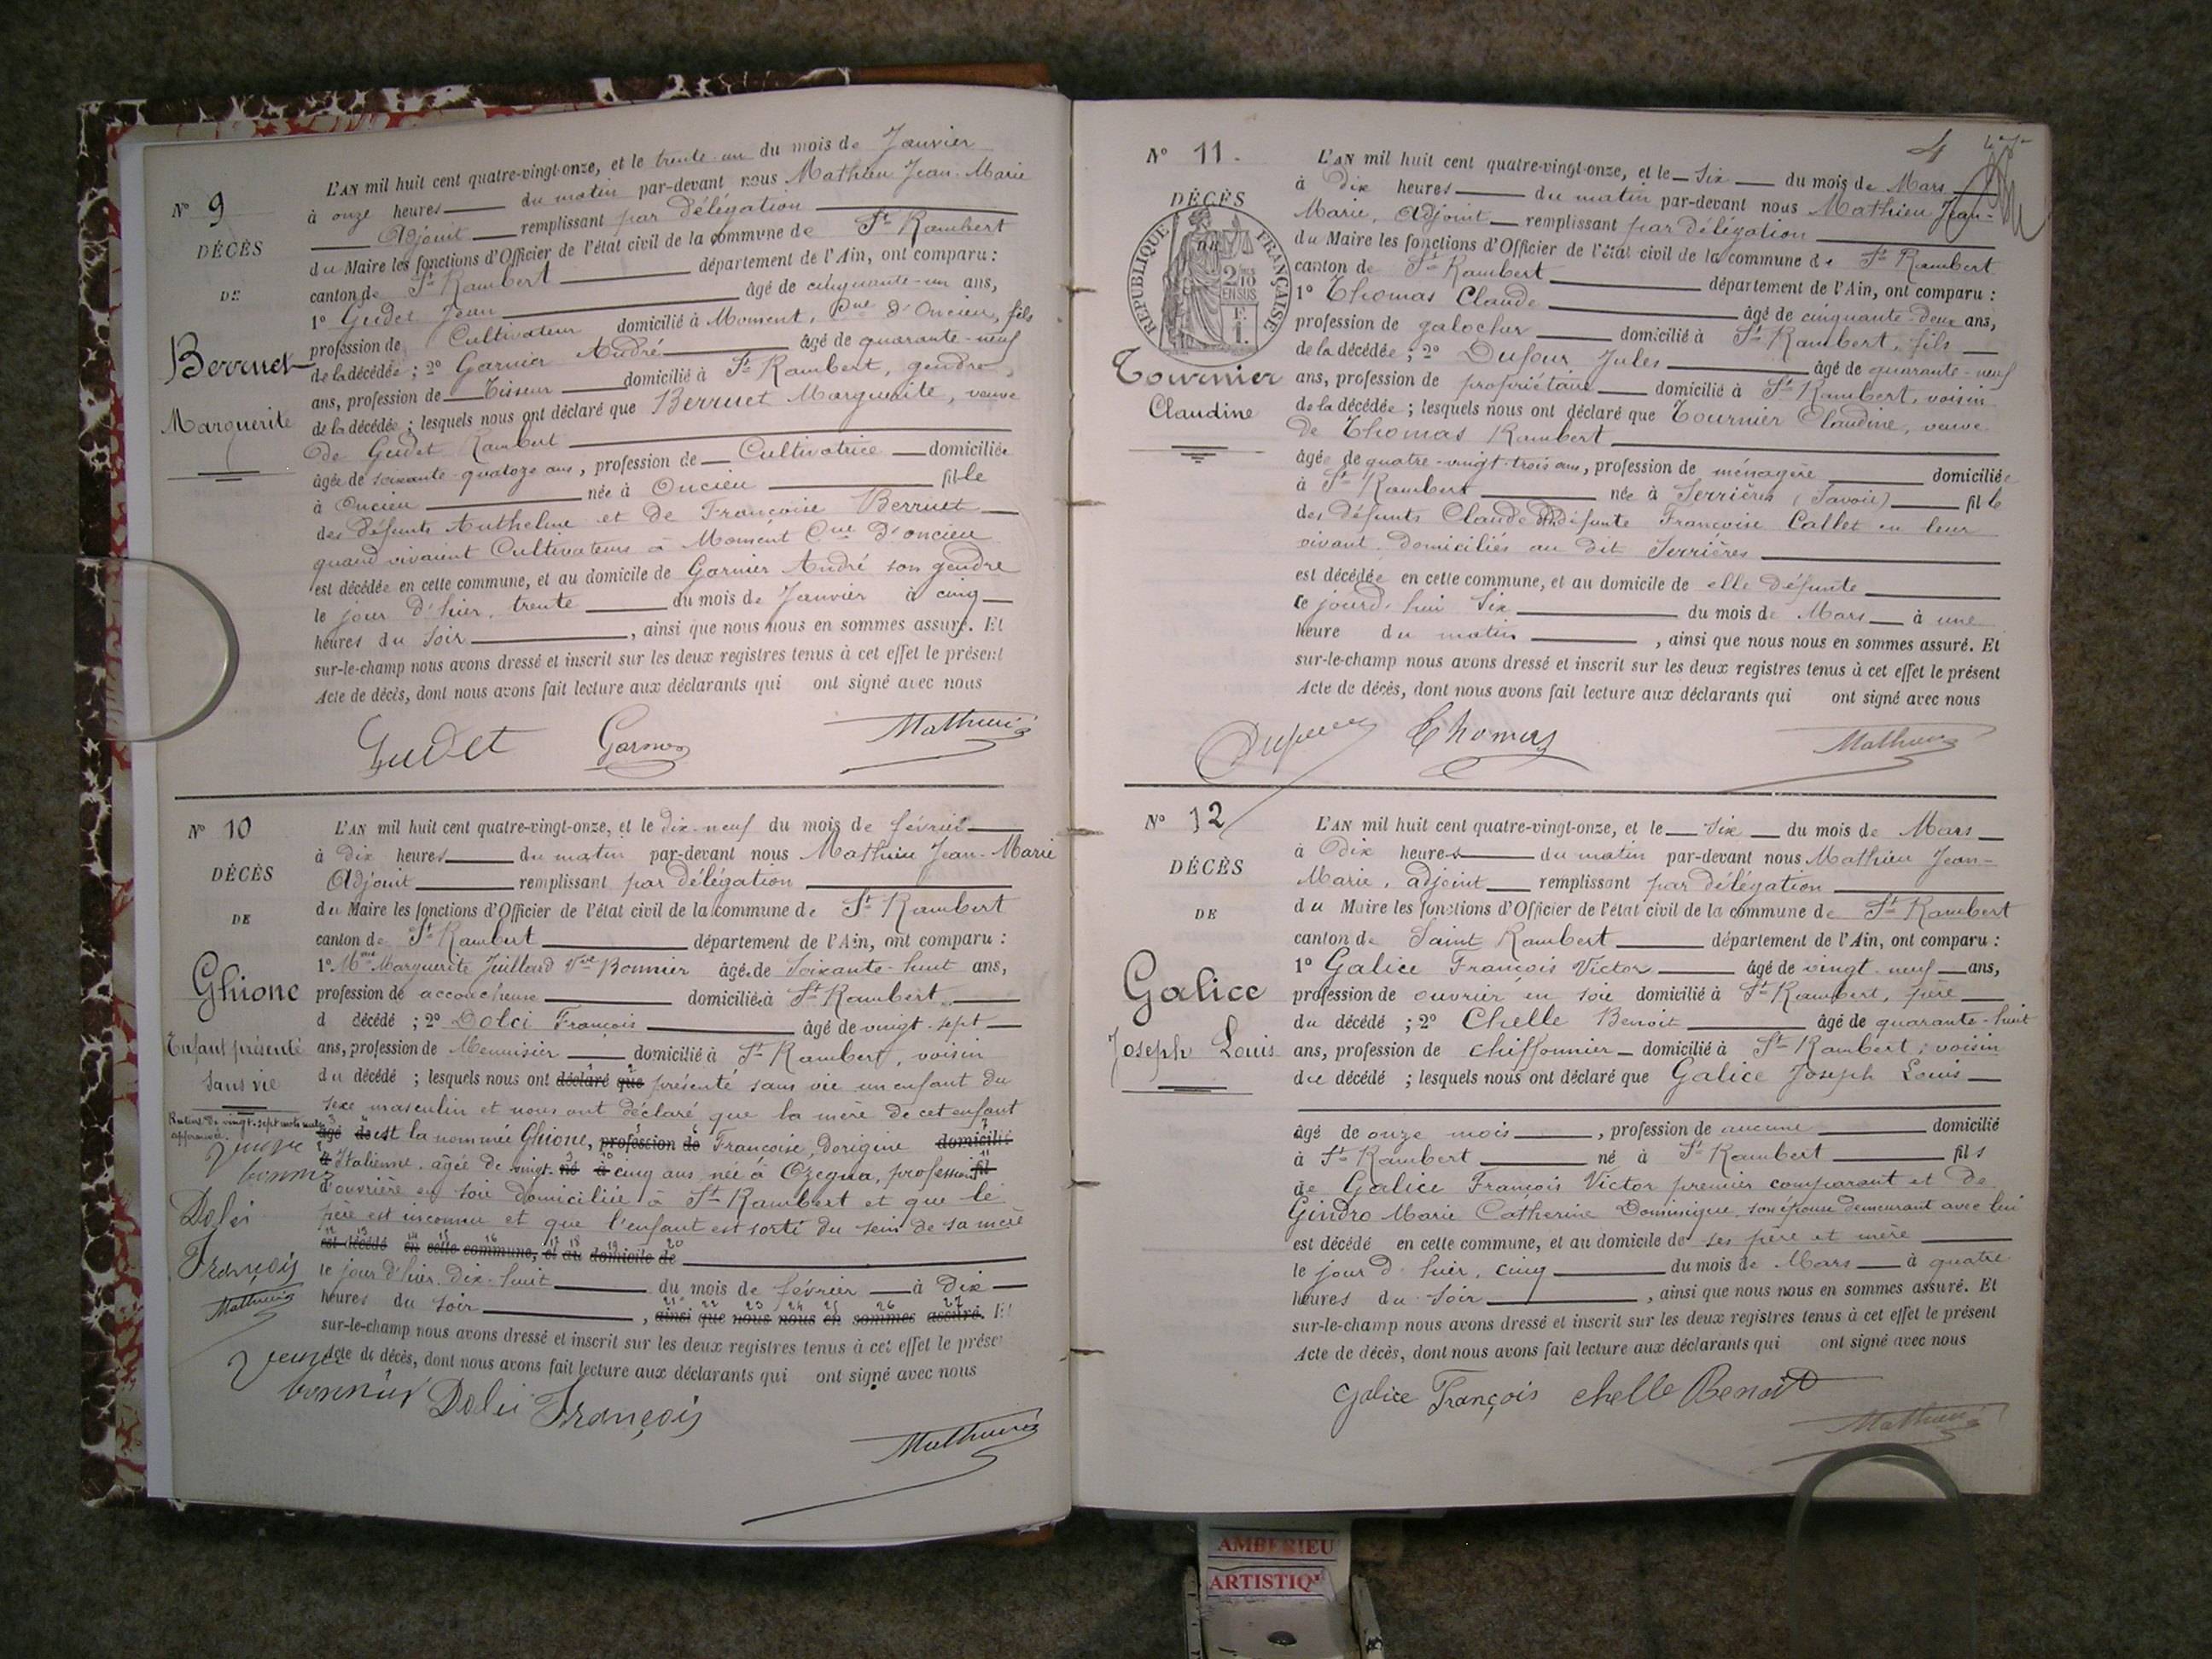 N° 9
DÉCÈS
DE
Berruet
Marguerite
L'AN mil huit cent quatre-vingt-onze, et le trente-un du mois de Janvier
à onze heures du matin par-devant nous Mathieu Jean-Marie
Adjoint remplissant par délégation
du Maire les fonctions d'Officier de l'état civil de la commune de St Rambert
canton de St Rambert département de l'Ain, ont comparu :
1° Gudet Jean âgé de cinquante-un ans,
profession de Cultivateur domicilié à Moment, Cne d'Oncieu, fils
de la décédée ; 2° Garnier André âgé de quarante-neuf
ans, profession de Tisseur domicilié à St Rambert, gendre
de la décédée ; lesquels nous ont déclaré que Berruet Marguerite, veuve
de Gudet Rambert
âgée de soixante-quatoze ans, profession de Cultivatrice domiciliée
à Oncieu née à Oncieu fille
des défunts Anthelme et de Françoise Berruet
quand vivaient Cultivateurs à Moment Cne d'oncieu
est décédée en cette commune, et au domicile de Garnier André son gendre
le jour d'hier, trente du mois de Janvier à cinq
heures du soir, ainsi que nous nous en sommes assuré. Et
sur-le-champ nous avons dressé et inscrit sur les deux registres tenus à cet effet le présent
Acte de décès, dont nous avons fait lecture aux déclarants qui ont signé avec nous
Gudet Mathieu
N° 10
DÉCÈS
DE
Ghione
Enfant présenté
sans vie
vingt-sept mots nuls
Veuve
bonnier
Dolci
François
Mathieu
L'AN mil huit cent quatre-vingt-onze, et le dix-neuf du mois de février
à dix heures du matin par-devant nous Mathieu Jean-Marie
Adjoint remplissant par délégation
du Maire les fonctions d'Officier de l'état civil de la commune de St Rambert
canton de St Rambert département de l'Ain, ont comparu :
1° Mme Marguerite Juillard Vve Bonnier âgée de soixante-huit ans,
profession de accoucheuse domiciliée à St Rambert
d décédé ; 2° Dolci François âgé de vingt-sept
ans, profession de Menuisier domicilié à St Rambert, voisin
du décédé ; lesquels nous ont déclaré que présenté sans vie un enfant du
sexe masculin et nous ont déclaré que la mère de cet enfant
âgé de est la nommée Ghione, profession de Françoise, Dorigine domicilié
à Italienne, âgée de vingt- né à cinq ans, née à Ozegna, profession fil
d'ouvrière en soie domiciliée à St Rambert et que le
père est inconnu et que l'enfant est sorti du sein de sa mère
est décédé en cette commune, et au domicile de
le jour d'hier, Dix-huit du mois de février à Dix
heures du soir, ainsi que nous nous en sommes assuré. Et
sur-le-champ nous avons dressé et inscrit sur les deux registres tenus à cet effet le prése
Acte de décès, dont nous avons fait lecture aux déclarants qui ont signé avec nous
Veuve
bonnier Dolci François
Mathieu
4
N° 11.
DÉCÈS
DE
RÉPUBLIQUE FRANÇAISE
2/10 EN SUS
F. 1.
Tournier
Claudine
L'AN mil huit cent quatre-vingt-onze, et le six du mois de Mars
à dix heures du matin par-devant nous Mathieu Jean-
Marie, Adjoint remplissant par délégation
du Maire les fonctions d'Officier de l'état civil de la commune de St Rambert
canton de St Rambert département de l'Ain, ont comparu :
1° Thomas Claude âgé de cinquante-deux ans,
profession de galocher domicilié à St Rambert, fils
de la décédée ; 2° Dufour Jules âgé de quarante-neuf
ans, profession de propriétaire domicilié à St Rambert, voisin
de la décédée ; lesquels nous ont déclaré que Tournier Claudine, veuve
de Thomas Rambert
âgée de quatre-vingt-trois ans, profession de ménagère domiciliée
à St Rambert née à Serrières (Savoie) fille
des défunts Claude défunte Françoise Callet en leur
vivant domiciliés au dit Serrières
est décédée en cette commune, et au domicile de elle défunte
ce jourd'hui six du mois de Mars à une
heure du matin, ainsi que nous nous en sommes assuré. Et
sur-le-champ nous avons dressé et inscrit sur les deux registres tenus à cet effet le présent
Acte de décès, dont nous avons fait lecture aux déclarants qui ont signé avec nous
Dufour Thomas Mathieu
N° 12
DÉCÈS
DE
Galice
Joseph Louis
L'AN mil huit cent quatre-vingt-onze, et le six du mois de Mars
à Dix heures du matin par-devant nous Mathieu Jean-
Marie, adjoint remplissant par délégation
du Maire les fonctions d'Officier de l'état civil de la commune de St Rambert
canton de Saint Rambert département de l'Ain, ont comparu :
1° Galice François Victor âgé de vingt-neuf ans,
profession de ouvrier en soie domicilié à St Rambert, père
du décédé ; 2° Chelle Benoit âgé de quarante-huit
ans, profession de chiffonnier domicilié à St Rambert, voisin
du décédé ; lesquels nous ont déclaré que Galice Joseph Louis
âgé de onze mois, profession de aucune domicilié
à St Rambert né à St Rambert fils
de Galice François Victor premier comparant et de
Gindro Marie Catherine Dominique, son épouse demeurant avec lui
est décédé en cette commune, et au domicile de ses père et mère
le jour d'hier, cinq du mois de Mars à quatre
heures du soir, ainsi que nous nous en sommes assuré. Et
sur-le-champ nous avons dressé et inscrit sur les deux registres tenus à cet effet le présent
Acte de décès, dont nous avons fait lecture aux déclarants qui ont signé avec nous
Galice François chelle Benoit
Mathieu
AMBERIEU
ARTISTIQ